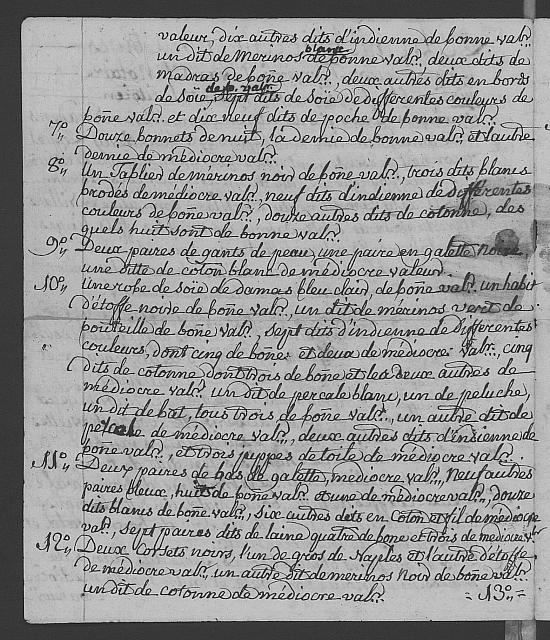 valeur, dix autres dits d'indienne de bonne val.r
blanc
un dit de Merinos de bonne val.r, deux dits de
madras de boñe val.r, deux autres dits en bords
de b. val.r
de Soïe, Sept dits de Soïe de differentes couleurs de
boñe val.r et dix neuf dits de poche de bonne val.r
7.° Douze bonnets de nuit, la demie de bonne val.r et l'autre
demie de médiocre val.r
8.° Un Tablier de merinos noir de boñe val.r, trois dits blancs
brodés de médiocre val.r, neuf dits d'indienne de differentes
couleurs de boñe val.r, douze autres dits de cotonne, des
quels huit sont de bonne val.r
9.° Deux paires de gants de peau, une paire en galette noire
une ditte de coton blanc de médiocre valeur.
10.° Une robe de Soïe de damas bleu clair, de boñe val.r un habit
d'étoffe noire de boñe val.r, un dit de mérinos vert de
bouteille de boñe val.r, sept dits d'indienne de differentes
couleurs, dont cinq de boñe et deux de médiocre val.r, cinq
dits de cotonne dont trois de boñe et les deux autres de
médiocre val.r un dit de percale blanc, un de peluche,
un dit de bat, tous trois de boñe val.r, un autre dit de
percale de médiocre val.r, deux autres dits d'indienne de
boñe val.r, et trois juppes de toile de médiocre val.r
11.° Deux paires de bas de galette, médiocre val.r, Neuf autres
paires bleux, huit de boñe val.r et une de médiocre val.r, douze
dits blancs de boñe val.r, six autres dits en coton et fil de médiocre
val.r, sept paires dits de laine quatre de boñe et trois de médiocre v.r
12.° Deux Corsets noirs, l'un de gros de Naples et l'autre d'étoffe
de médiocre val.r, un autre dit de merinos noir de boñe val.r
un dit de cotonne de médiocre val.r = 13.° =